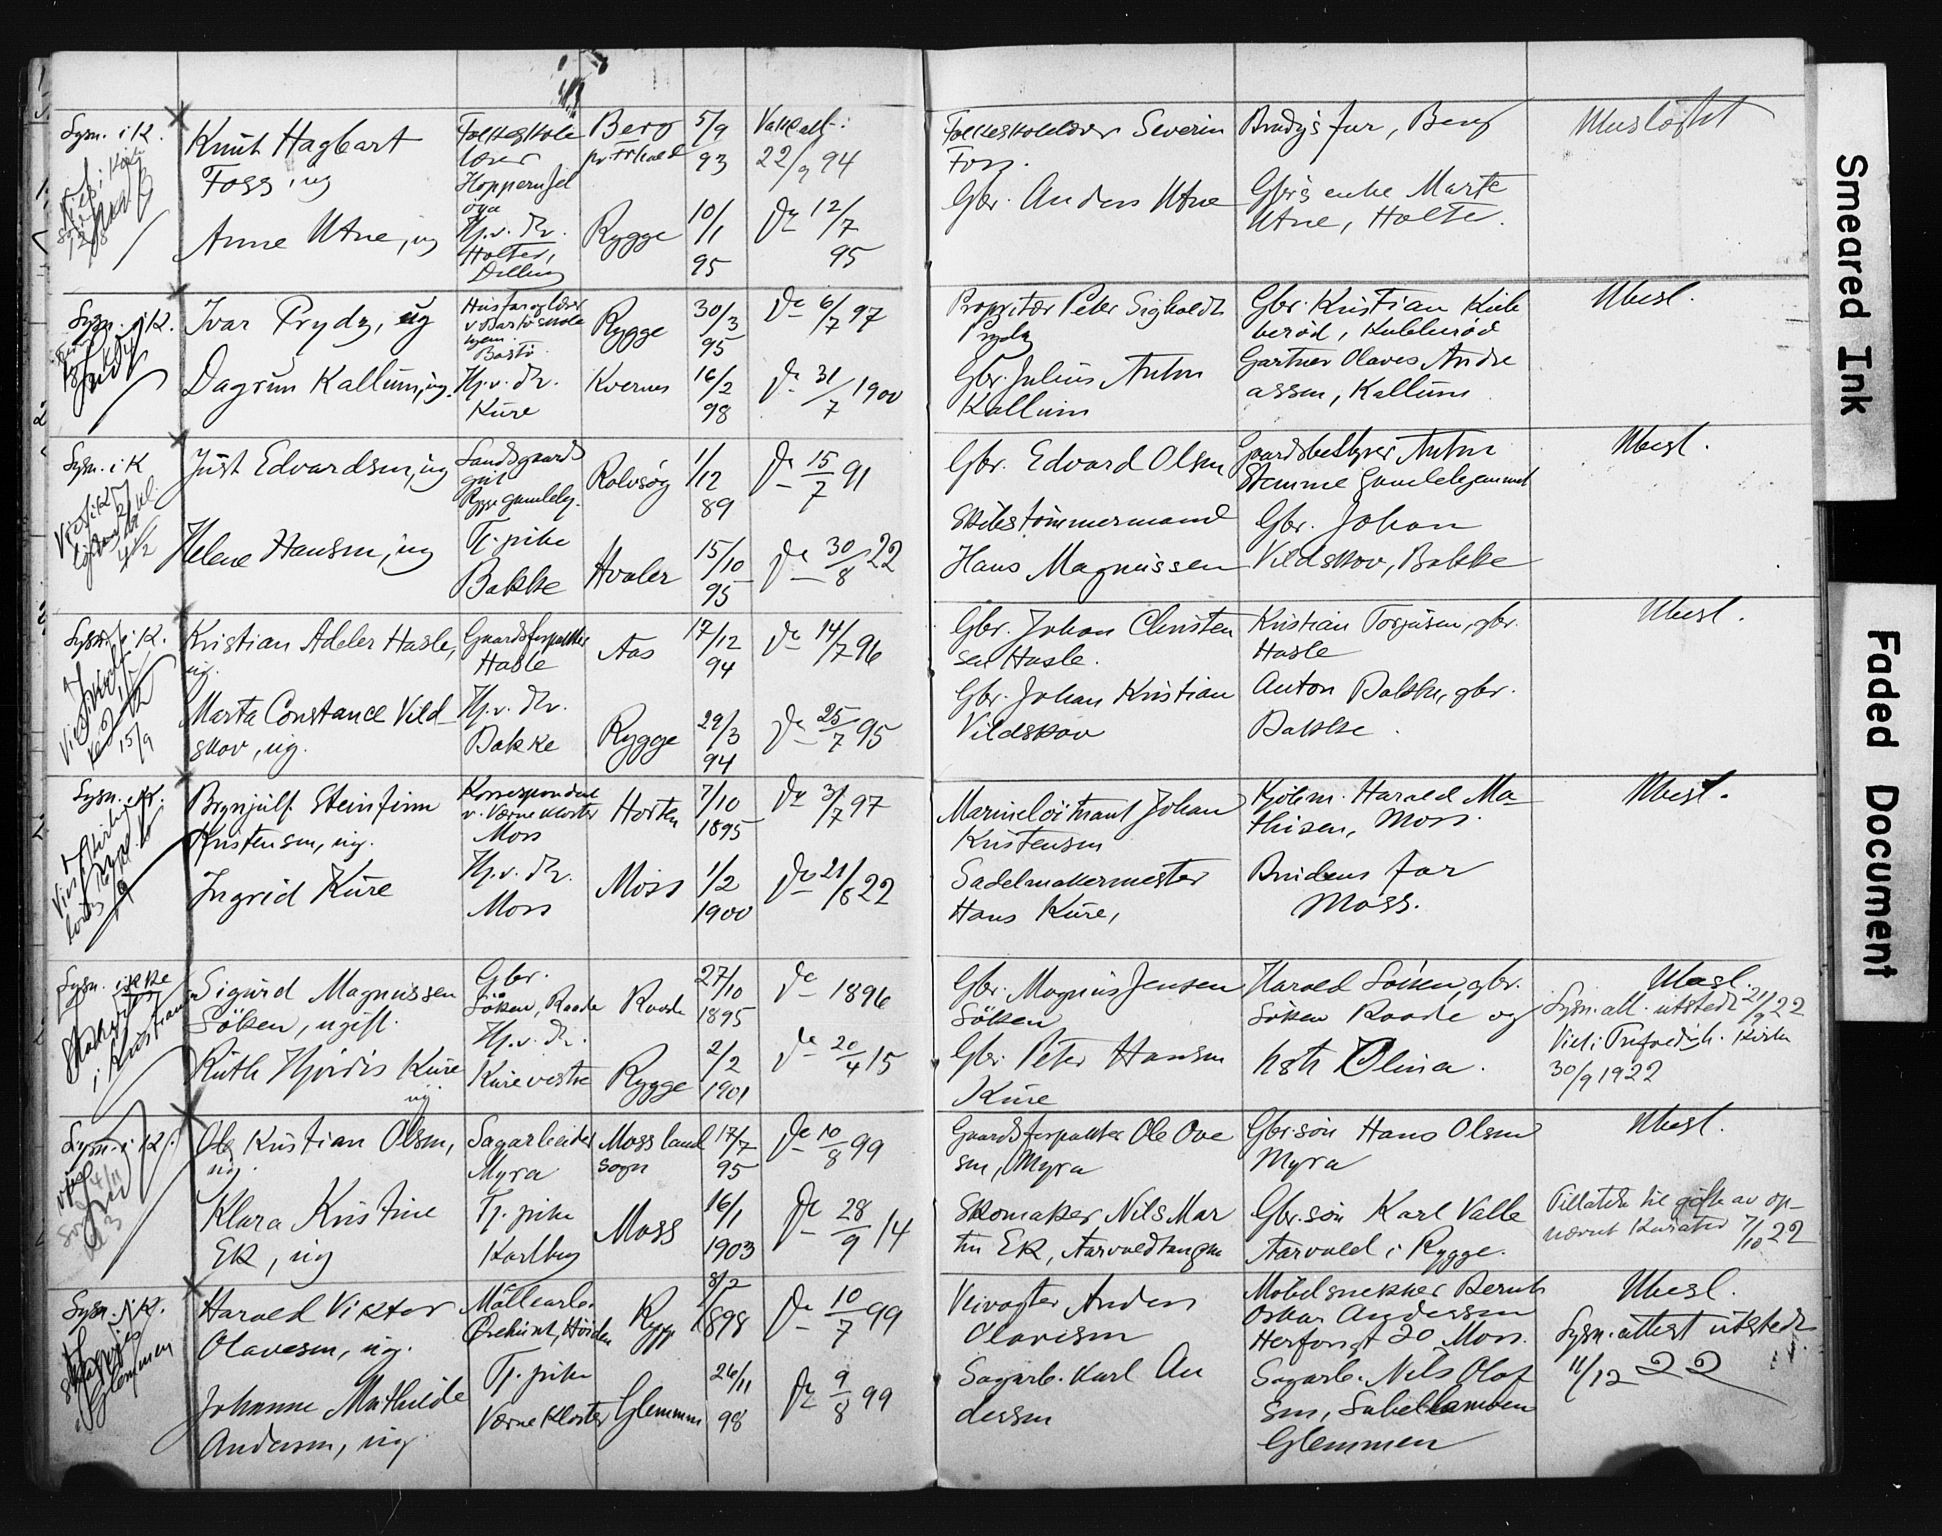 Lysn. i K.
Knut Hagbart
Foss, ug
Folkeskole
lærer
Berg
pr. Fr.hald
5/9
93
Vakc.att.:
22/9 94
Folkeskolelærer Severin
Foss.
Brudgs far, Berg
Ubeslægtet
Anne Utne, ug
Hj.v. Dr.
Holter,
Dilling
Rygge
10/1
95
Do 12/7
95
Gbr. Anders Utne
Gbr's enke Marte
Utne, Holter.
Lysn. i K.
Ivar Prydz, ug
Rygge
30/3
95
Do 6/7 97
Propritær Peter Sigholdt
Prydz
Gbr. Kristian Kub
berød, Kubberød
Ubesl.
Dagrun Kallum, ug.
Hj.v. Dr.
Kure
Kvernes
16/2
98
Do 31/7 1900
Gbr. Julius Anton
Kallum
Gartner Olaves Andre
assen, Kallum
Lysn. i K
Just Edvardsen, ug
Landsgaards
gut
Rygge gamleby.
Rolvsøy
1/12
89
Do 15/7 91
Gbr. Edvard Olsen
Gaardsbestyrer Anton
Ubesl.
Helene Hansen, ug
Tj.pike
Bakke
Hvaler
15/10
95
Do 30/8 22
Skibstømmermand
Hans Magnussen
Gbr. Johan
Vildskov, Bakke
Lysn. i K.
15/9
Kristian Adeler Hasle,
ug.
Gaardsforpakter
Hasle
Aas
17/12
94
Do 14/7 96
Gbr. Johan Christen
sen Hasle.
Kristian Torjusen, gbr.
Hasle
Ubesl.
Marta Constance Vild
skov, ug.
Hj.v. Dr.
Bakke
Rygge
29/3
94
Do 25/7 95
Gbr. Johan Kristian
Vildskov
Anton Bakke, gbr.
Bakke.
Lysn. i K.
Brynjulf Steinfinn
Kristensen, ug.
Korrespondent
v. Værne Kloster
Moss
Horten
7/10
1895
Do 3/7 97
Marineløitnant Johan
Kristensen
Kjøbm. Harald Ma
thisen, Moss.
Ubesl.
Ingrid Kure
Hj.v. Dr.
Moss
Moss
1/2
1900
Do 21/8 22
Sadelmakermester
Hans Kure,
Brudens far
Moss.
Lysn. ikke
Sigurd Magnussen
Søken, ugift.
Gbr.
Søken, Raade
Raade
27/10
1895
Do 1896
Gbr. Magnus Jensen
Søken
Harald Søken, gbr.
Søken Raade, og
Ubesl.
Lysn.att. utstedt 21/9 22
Viet i Trefoldigh. kirken
30/9 1922
Ruth Hjørdis Kure
ug
Hj.v. Dr.
Kure vestre
Rygge
2/2
1901
Do 20/4 15
Gbr. Peter Hansen
Kure
hstr Olina.
Lysn. i K.
Ole Kristian Olsen,
ug.
Sagarbeider
Myra
Moss land
sogn
17/7
95
Do 10/8 99
Gaardsforpakter Ole Ove
sen, Myra
Gbr.søn Hans Olsen
Myra
Ubesl.
Klara Kristine
Ek, ug
Tj.pike
Karlberg
Moss
16/1
1903
Do 28/9 14
Skomaker Nils Mar
tin Ek, Aarvoldtangen
Gbr.søn Karl Valle
Aarvold i Rygge.
Tillatelse til gifte av op-
nævnt kurator 7/10 22
Lysn. i K.
i Glemmen
Harald Viktor
Olavesen, ug.
Møllearb.
Rygge
8/2
1898
Do 10/7 99
Veivogter Anders
Olavesen
Møbelsnekker Bernh
Oskar Andersen
Herfongt 20 Moss.
Ubesl.
Lysn.attest utstedt
11/12 22
Johanne Mathilde
Andersen, ug.
Tj.pike
Værne Kloster
Glemmen
26/11
98
Do 9/8 99
Sagarb. Karl An
dersen
Sagarb. Nils Olaf
sen,
Glemmen
Smeared Ink
Faded Document